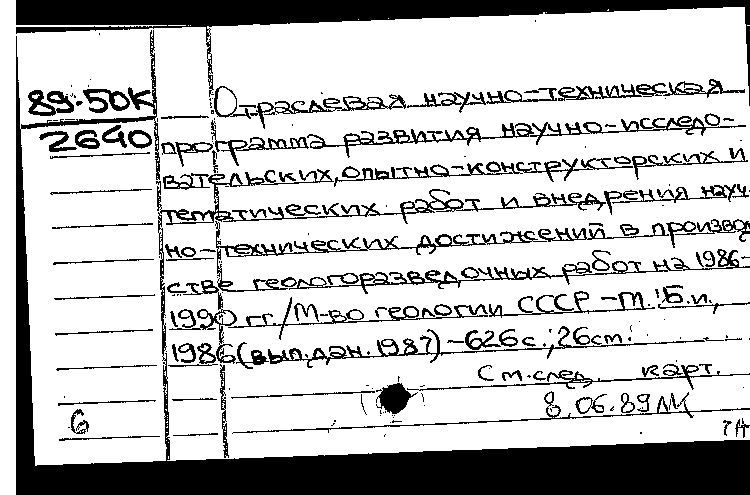 89-50К
2640
Отраслевая научно-техническая
программа развития научно-исследо-
вательских, опытно-конструкторских и
тематических работ и внедрения науч
но-технических достижений в производ
стве геологоразведочных работ на 1986-
1990 гг./М-во геологии СССР -М.:Б.и.,
1986(вып.дан.1987)-626с.;26см.
См.след. карт.
8.06.89ЛК
6